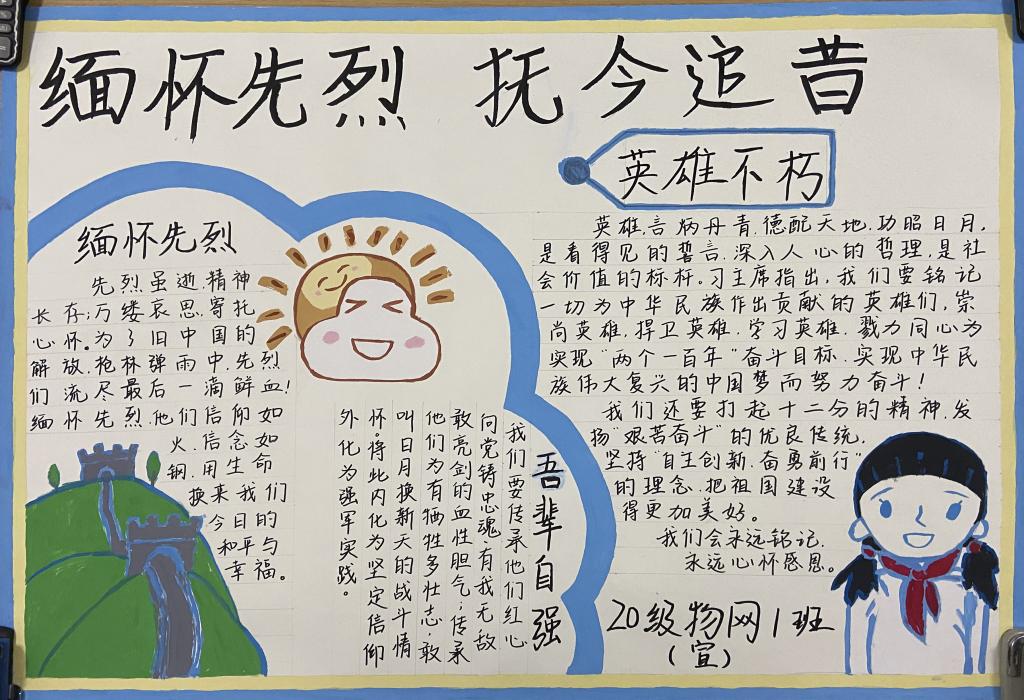 缅怀先烈 抚今追昔
英雄不朽
缅怀先烈
先烈虽逝,精神
长存;万缕哀思,寄托
心怀。为了旧中国的
解放,枪林弹雨中,先烈
们流尽最后一滴鲜血!
缅怀先烈,他们信仰如
火,信念如
钢,用生命
换来我们
今日的
和平与
幸福。
吾辈自强
我们要传承他们红心
向党铸忠魂,有我无敌
敢亮剑的血性胆气;传承
他们为有牺牲多壮志,敢
叫日月换新天的战斗情
怀,将此内化为坚定信仰
外化为强军实践。
英雄,言炳丹青,德配天地,功昭日月,
是看得见的誓言,深入人心的哲理,是社
会价值的标杆。习主席指出,我们要铭记
一切为中华民族作出贡献的英雄们,崇
尚英雄,捍卫英雄,学习英雄,戮力同心为
实现"两个一百年"奋斗目标、实现中华民
族伟大复兴的中国梦而努力奋斗!
我们还要打起十二分的精神,发
扬"艰苦奋斗"的优良传统,
坚持"自主创新,奋勇前行"
的理念,把祖国建设
得更加美好。
我们会永远铭记,
永远心怀感恩。
20级物网1班
(宣)